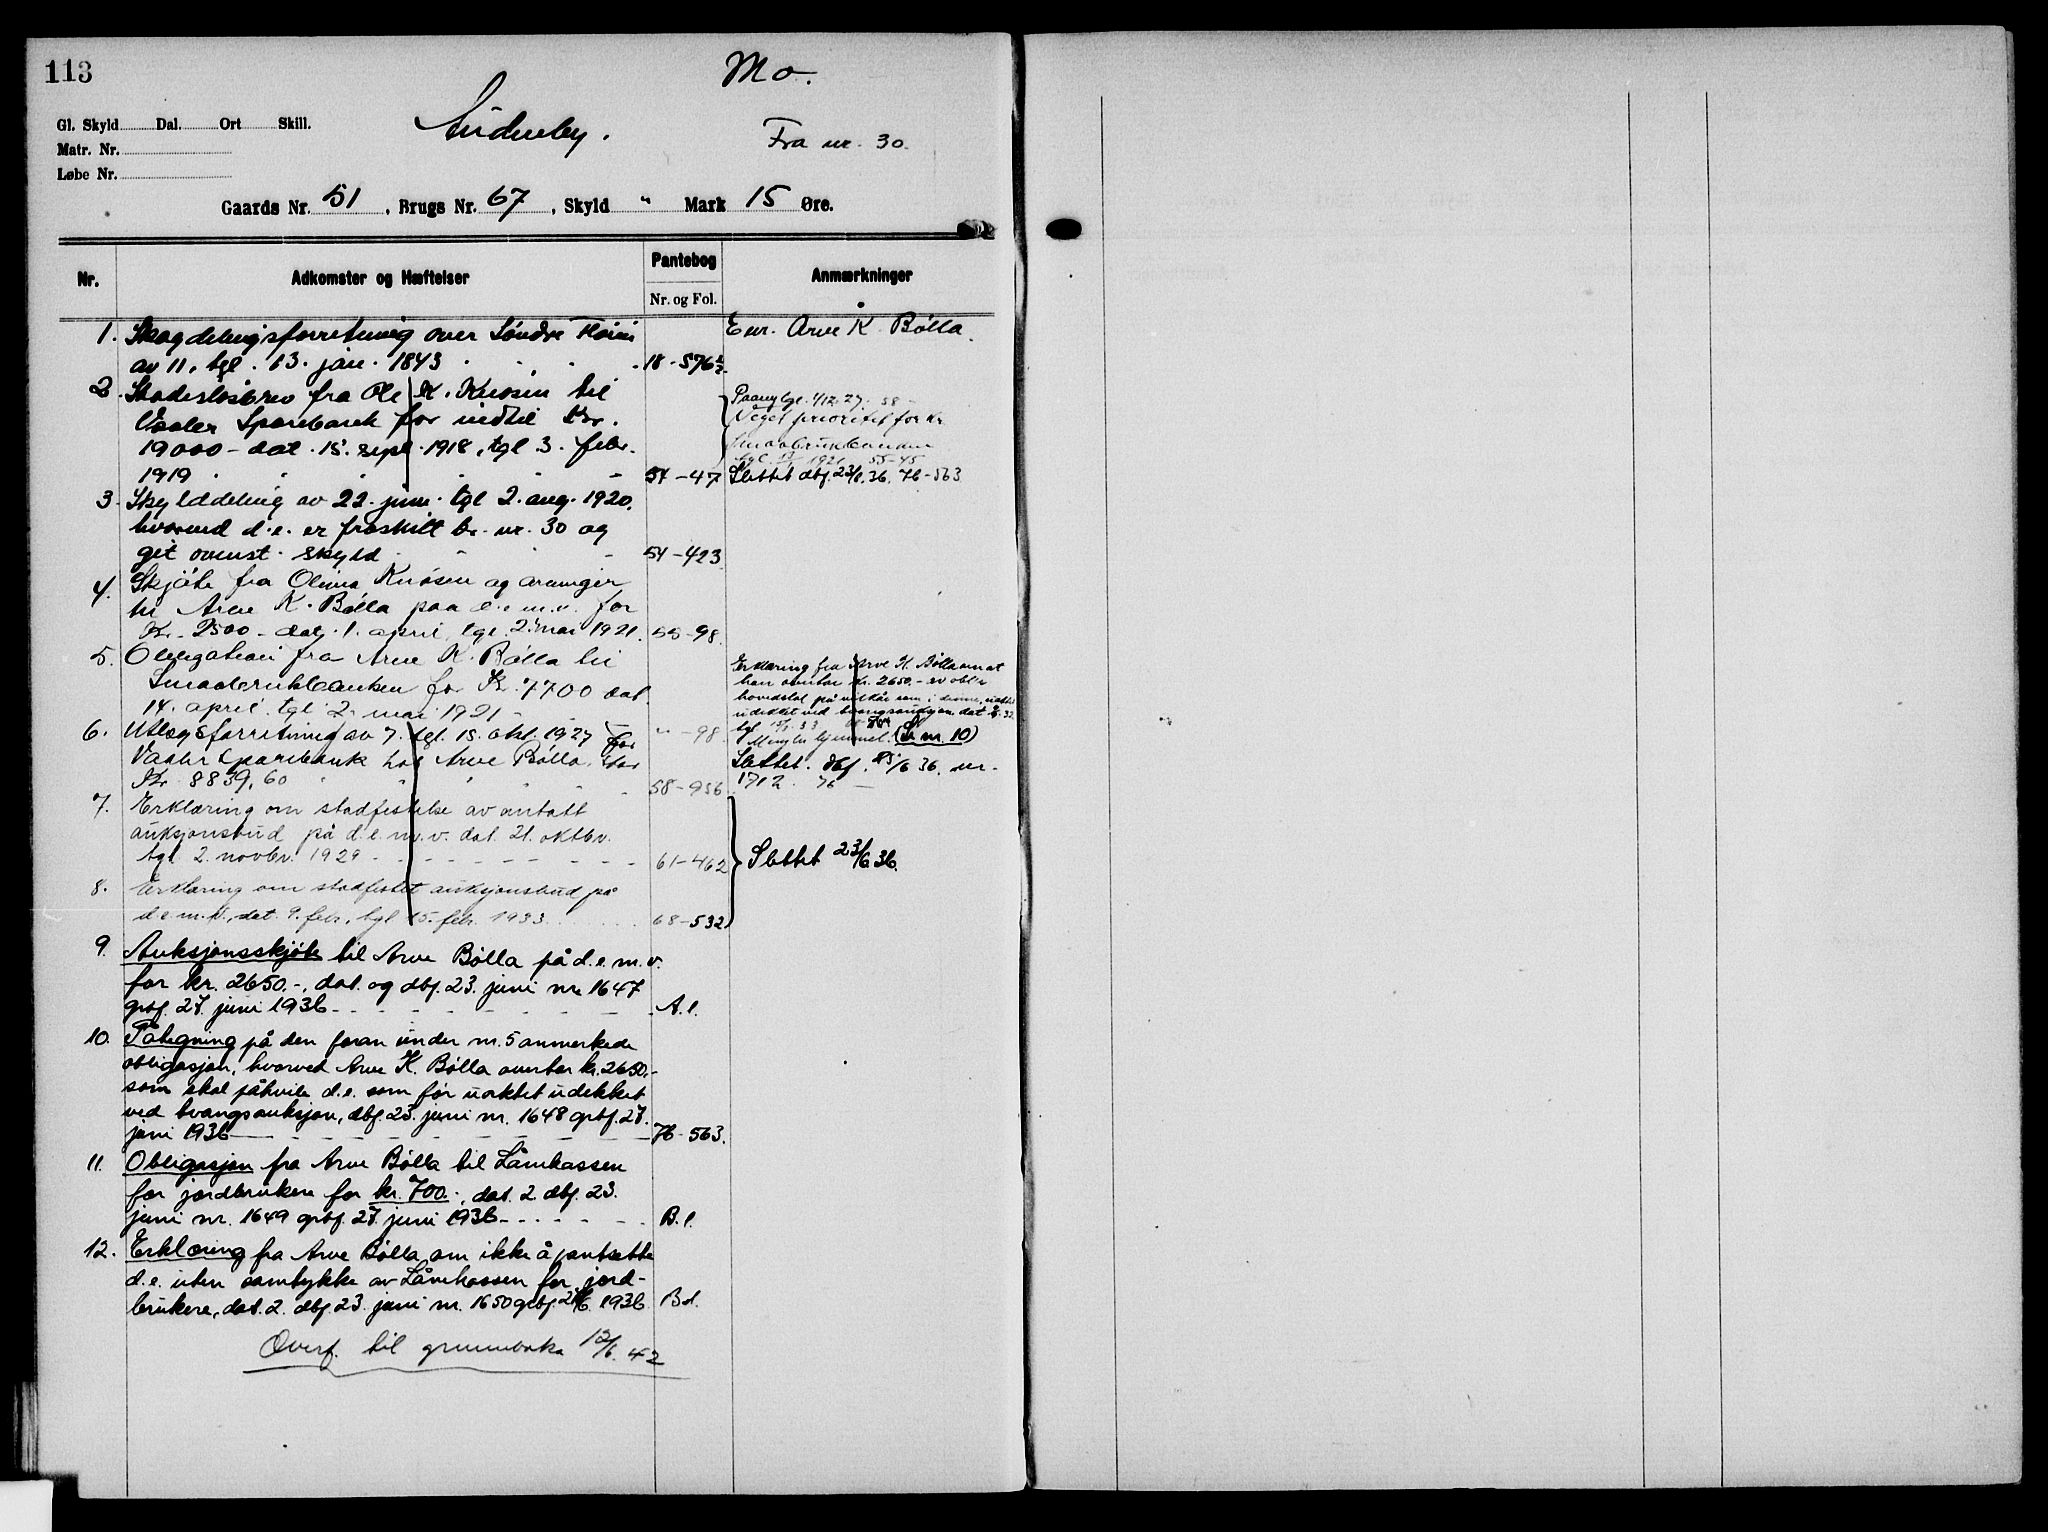 113
Mo.
Gl. Skyld Dal. Ort Skill.
Matr. Nr.
Løbe Nr.
Fra nr. 30.
Gaards Nr. 51, Brugs Nr. 67, Skyld " Mark 15 Øre.
Nr. Adkomster og Hæftelser Pantebog Anmærkninger
Nr. og Fol.
1. Skogdelingsforretning over Søndre
av 11. tgl. 13. jan. 1843 18-576
Eier. Arve K. Bølla.
2. Skadesløsbrev fra Ole K. Knosen til
Vaaler Sparebank for indtil Kr.
19000 - dat. 15. sept. 1918, tgl 3. febr.
1919 54-47
Veget prioritet for kr
Smaabrukbanken
tgl. 1921 55-45
Slettet dbf. 23/6.36. 76-563
3. Skylddeling av 22. juni. tgl 2. aug. 1920.
hvorved d.e. er fraskilt br. nr. 30 og
git ovenst. skyld 54-423
4. Skjøte fra Olina Knosen og arvinger
til Arve K. Bølla paa d.e. m.v. for
Kr. 2500 - dat. 1. april, tgl. 2. mai 1921. 55-98.
5. Obligation fra Arve K. Bølla til
Smaabrukbanken for Kr. 7700 dat.
14. april. tgl 2. mai 1921 " - 98
Erklæring fra Arve K. Bølla om at
han overtar kr. 2650.- av obl's
hovedstol på vilkår som i denne, uaktet
udekket ved tvangsauksjon dat
Mangler hjemmel. (Se nr. 10)
6. Utlægsforretning av 7. tgl. 15. okt. 1927 for
Vaaler Sparebank hos Arve Bølla for
Kr. 8839,60 58-956
Slettet. dbf. 23/6 36. nr.
1712. 76
7. Erklæring om stadfestelse av antatt
auksjonsbud på d.e. m.v. dat. 21. oktbr.
tgl. 2. novbr. 1929 61-462
Slettet 23/6 36.
8. Erklæring om stadfestet auksjonsbud på
d.e. m.v., dat. 9. febr., tgl 15. febr. 1933 68-532
9. Auksjonsskjøte til Arve Bølla på d.e. m.v.
for kr. 2650.-, dat. og dbf. 23. juni nr. 1647
grbf. 27. juni 1936 A.1.
10. Påtegning på den foran under nr. 5 anmerkede
obligasjon, hvorved Arve K. Bølla overtar kr. 2650.-
som skal påhvile d.e. som før uaktet udekket
ved tvangsauksjon, dbf. 23. juni nr. 1648 grbf. 27.
juni 1936 76-563.
11. Obligasjon fra Arve Bølla til Lånekassen
for jordbrukere for kr. 700.-, dat. 2. dbf. 23.
juni nr. 1649 grbf. 27. juni 1936 B.1.
12. Erklæring fra Arve Bølla om ikke å pantsette
d.e. uten samtykke av Lånekassen for jord-
brukere, dat. 2. dbf. 23. juni nr. 1650 grbf. 27/6. 1936 Bd.
Overf. til grunnboka 12/6. 42